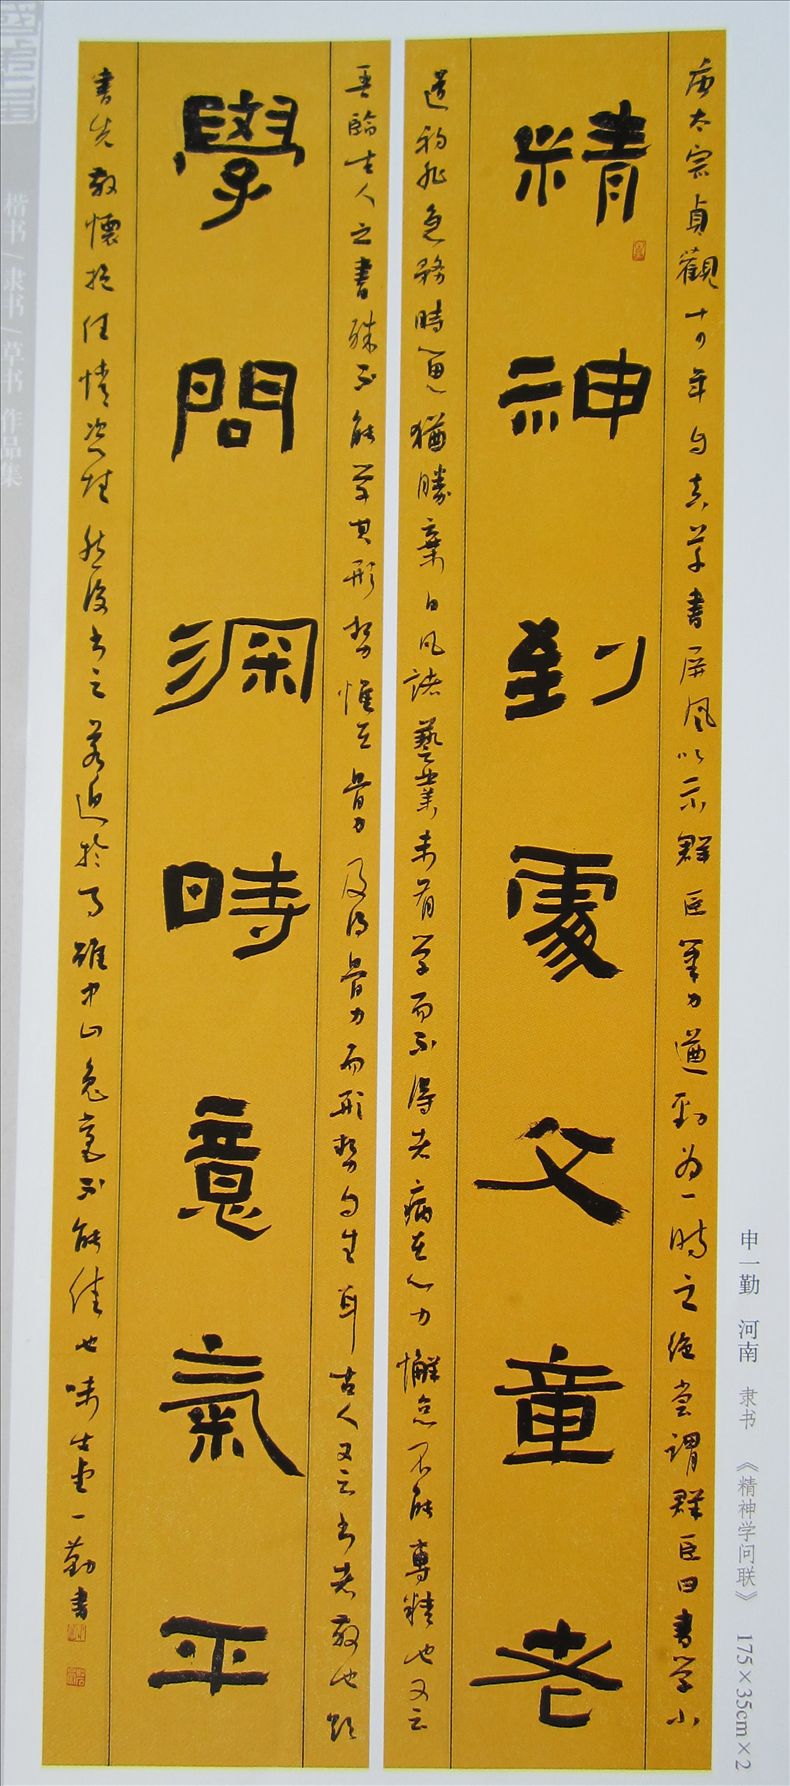 唐太宗貞觀十四年自真草書屏風以示群臣筆力遒勁為一時之絕嘗謂群臣曰書學小
精神到處文章老
道初非急務時留心猶勝棄日凡諸藝業未有學而不得者病在心力懈怠不能專精也又云
吾臨古人之書殊不能學其形勢惟在骨力及得骨力而形勢自生耳古人又云書者散也欲
學問深時意氣平
書先散懷抱任情恣性然後書之若迫於事雖中山兔毫不能佳也味生堂一勤書
申一勤 河南 隶书 《精神学问联》 175×35cm×2
楷书/隶书/草书 作品集